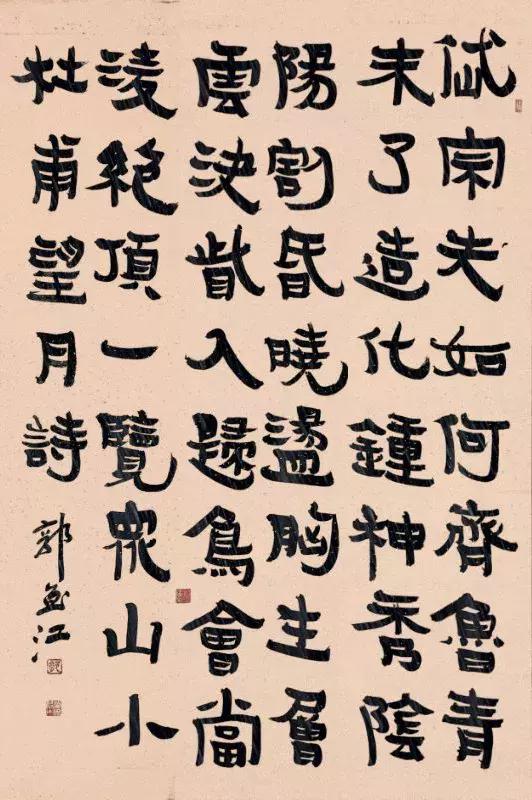 岱宗夫如何齊魯青
未了造化鍾神秀陰
陽割昏曉盪胸生層
雲決眥入歸鳥會當
淩絕頂一覽眾山小
杜甫望月詩
郭江